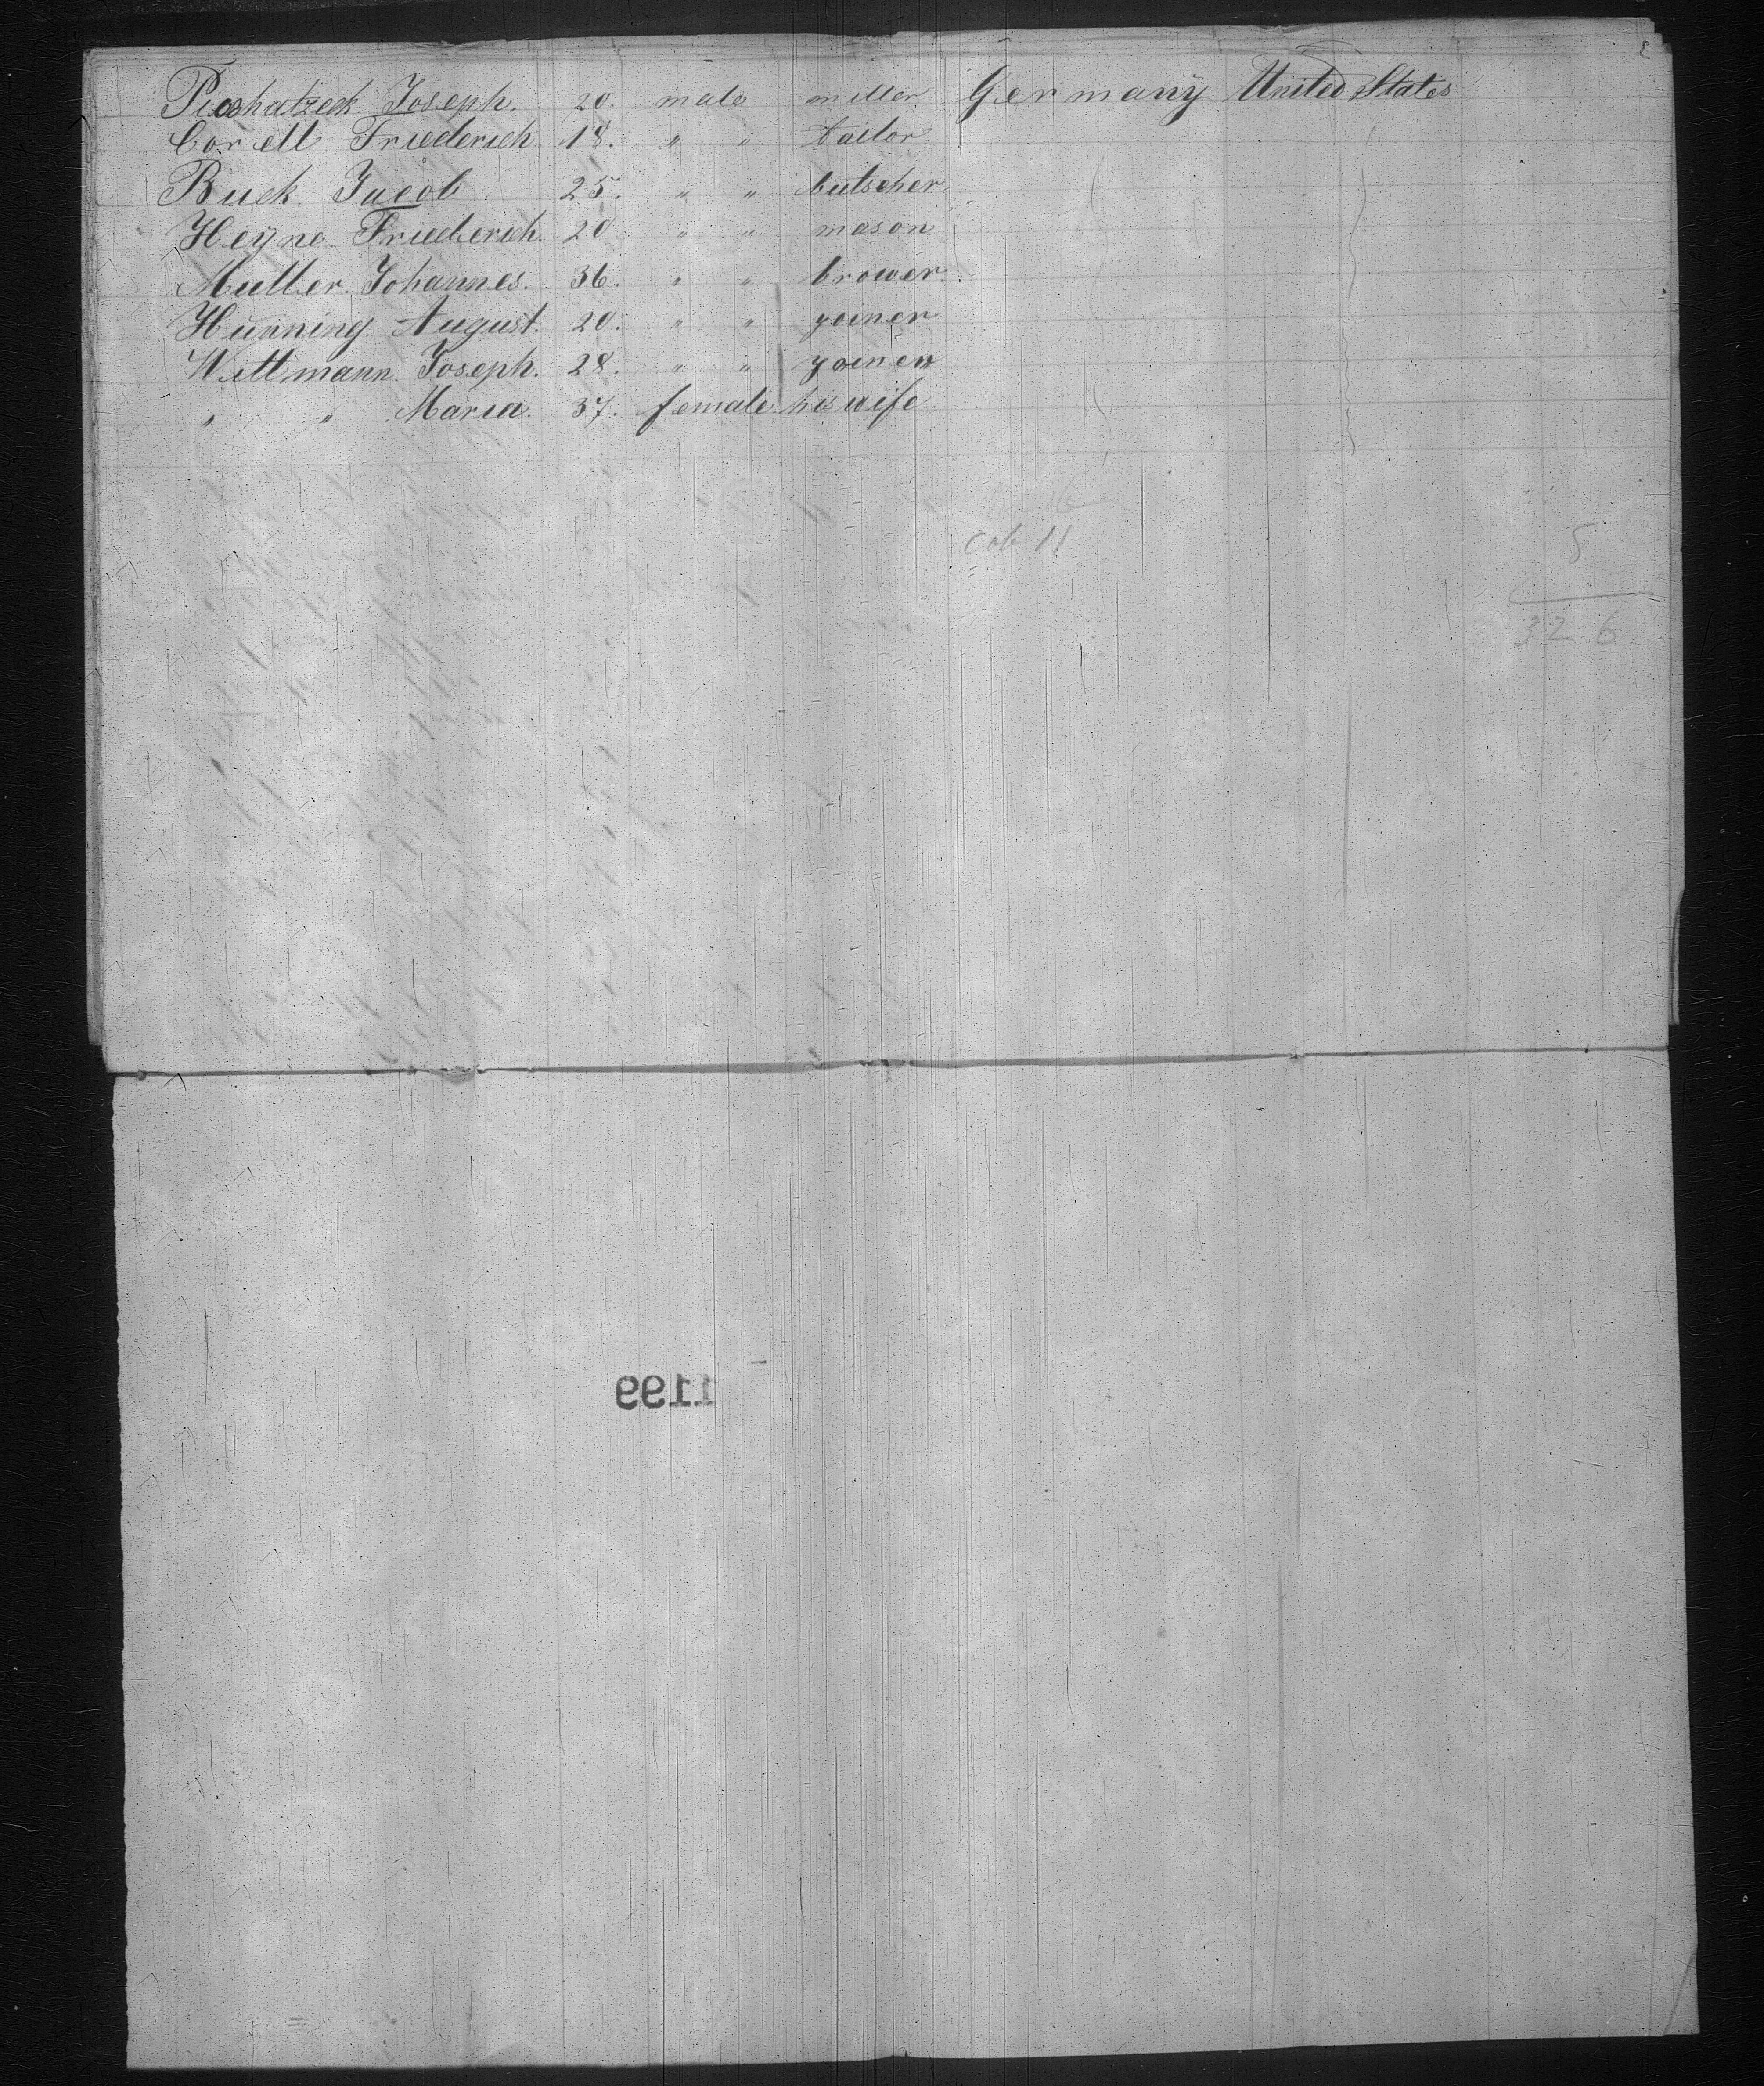 Joseph. 20. male miller Germany United States
Corell Friederich 18. " " tailor
Buck Jacob 25. " " butscher
Heÿne Friederich. 20 " " mason
Muller Johannes. 36. " " brower
Hünning August. 20. " " joiner
Wittmann Joseph. 28. " " joiner
" " Maria. 37. female his wife
16
Cab 11
5
326
1199